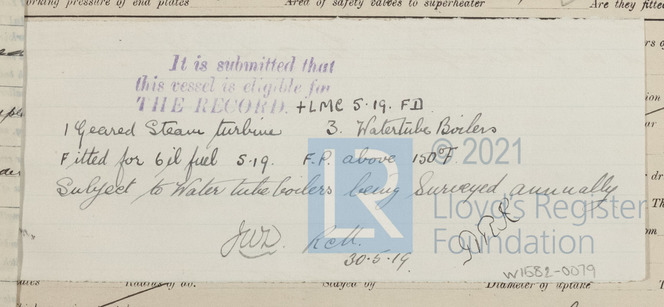 orking pressure of end plates Area of safety valves to superheater Are they fitted
It is submitted that
this vessel is eligible for
THE RECORD. +LMC 5.19. FD
1 Geared Steam turbine 3. Watertube Boilers
Fitted for oil fuel 5.19. F.P. above 150°F.
Subject to Water tube boilers being Surveyed annually
© 2021
LR
Lloyd's Register
Foundation
JWD. RCM.
30.5.19.
W1582-0079
Radius of do. Stayed by Diameter of uptake